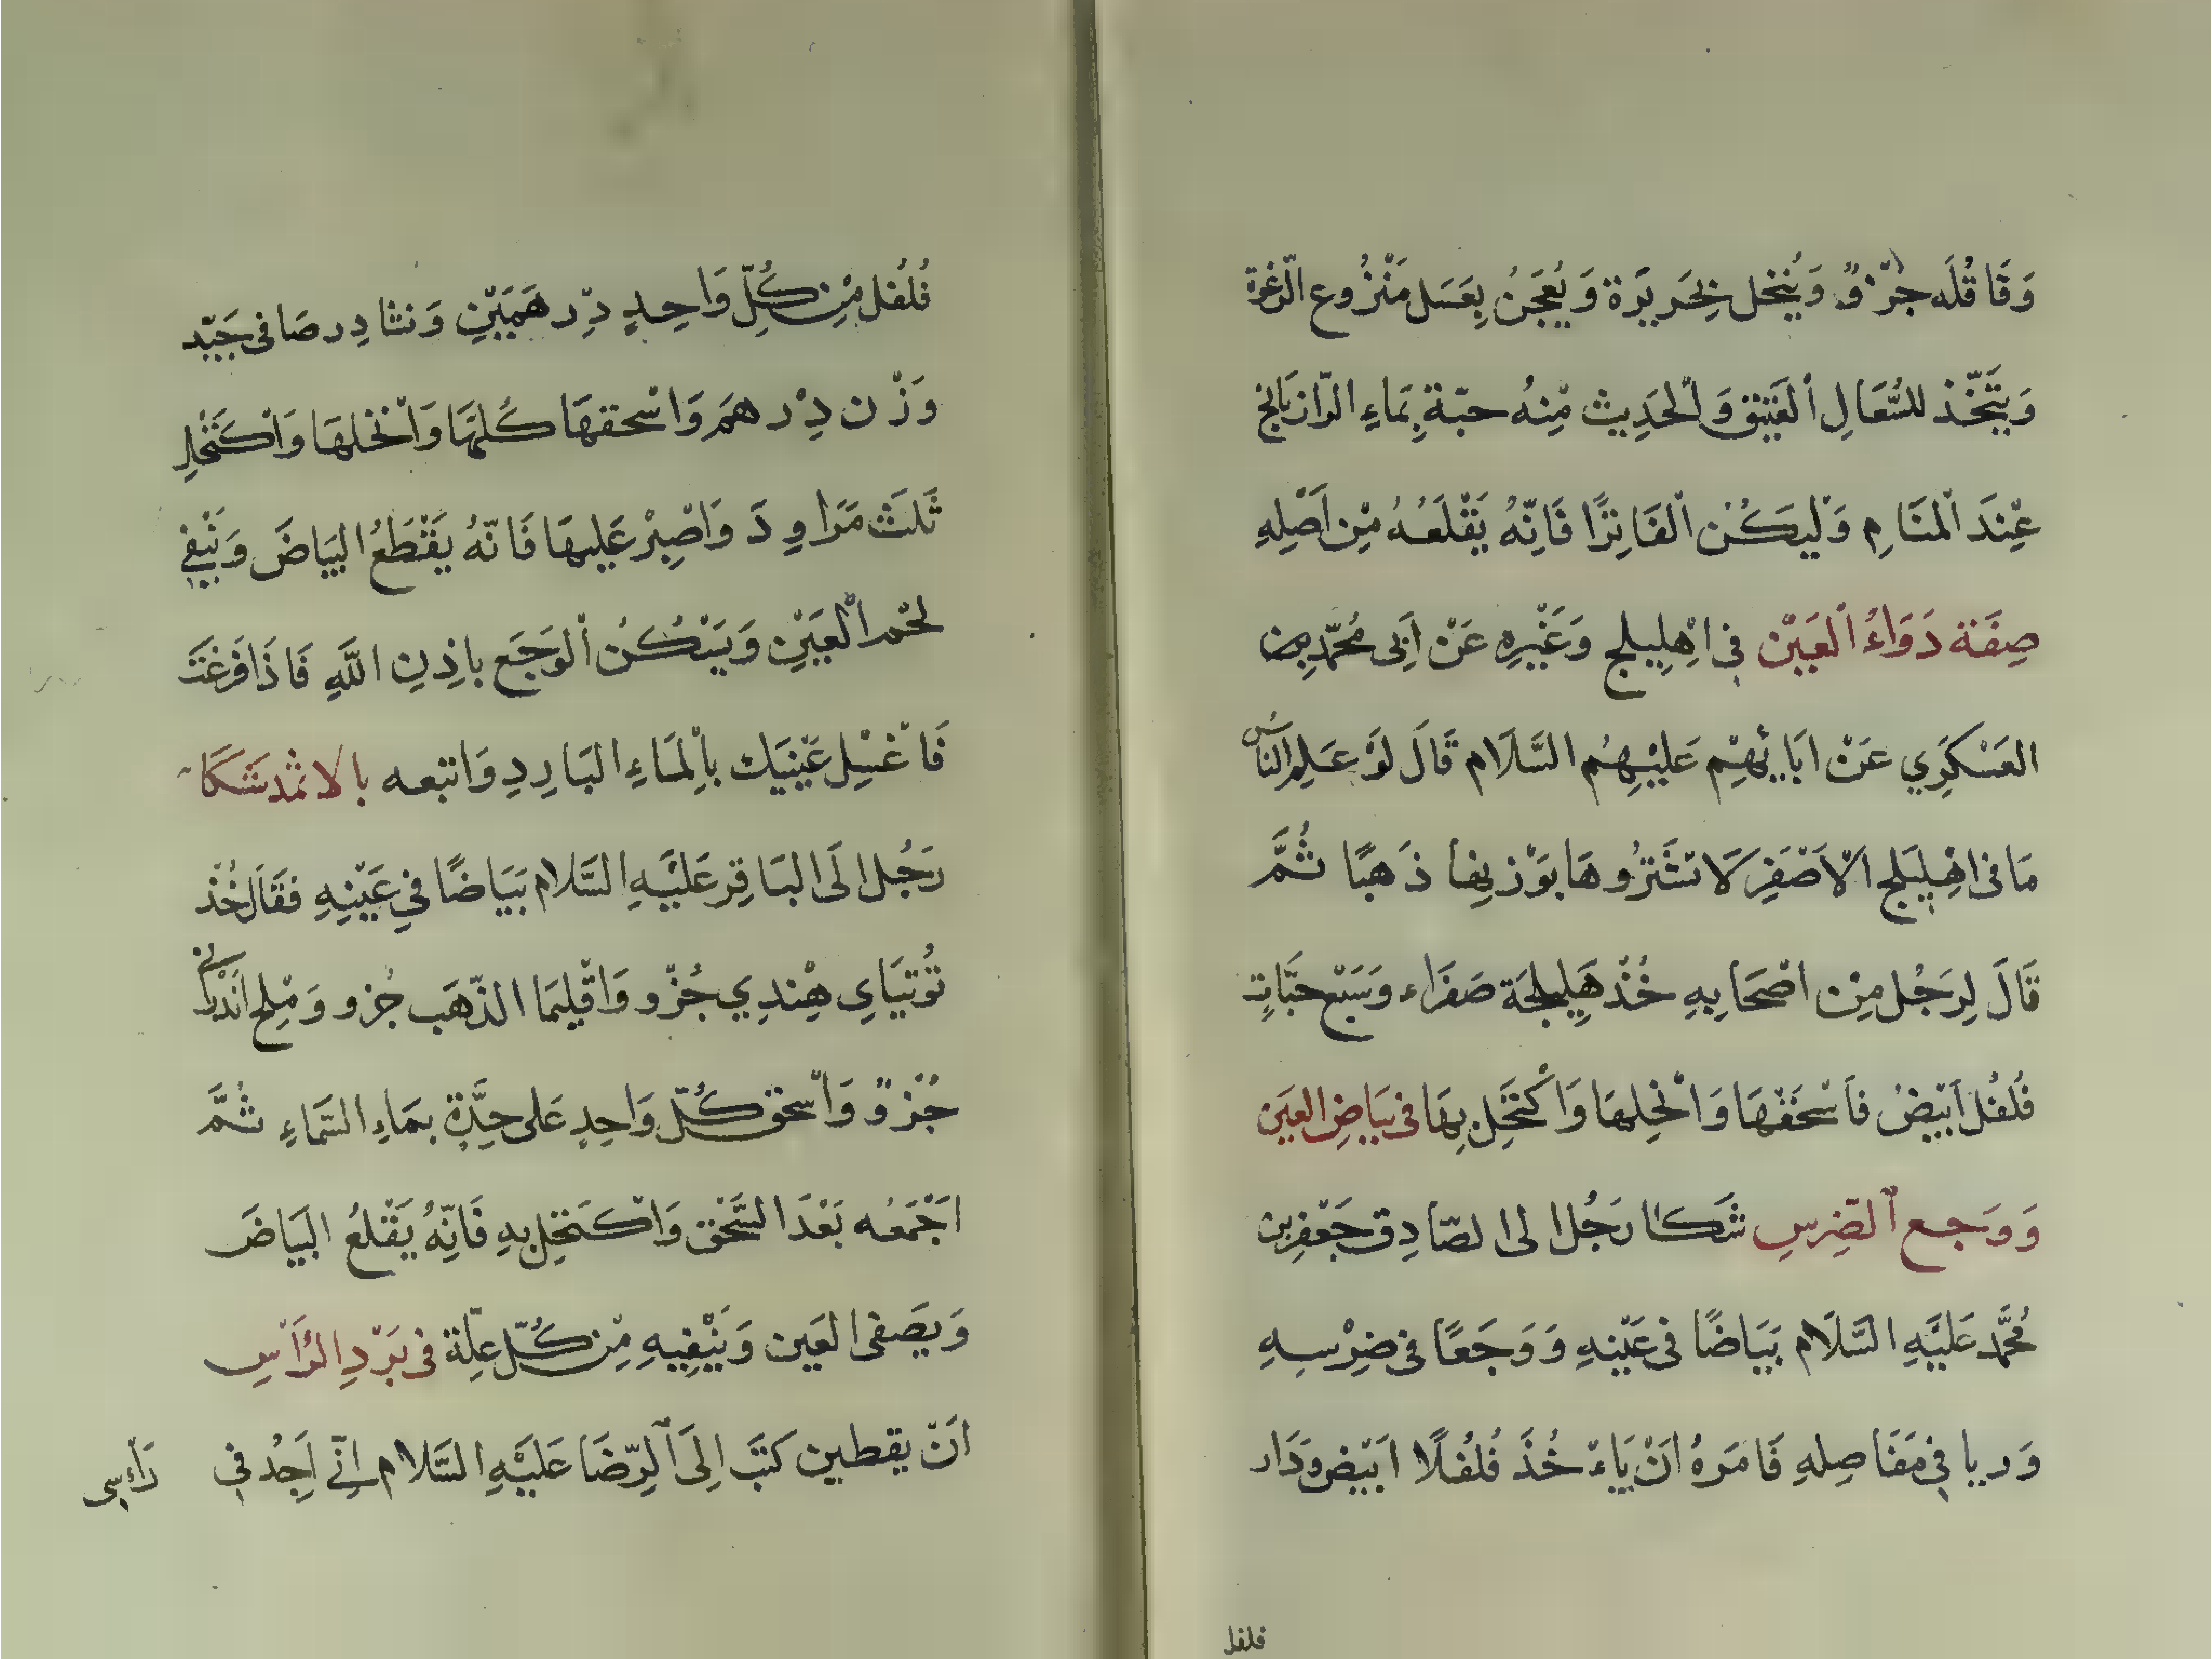 وَقَاقُلَه جُزْوٌ وَيُنْخل بِحَرِيرَة وَيُعْجَنُ بِعَسَل مَنْزُوعِ الرّغْوَة
وَيتَّخّذ للسُّعَالِ اْلعَتِيق وَاْلحَدِيث مِنْهُ حبّة بِمَاءِ الرّازيَانج
عِنْدَ اْلمَنَامِ وَلْيَكُنْ اْلفَاتِرًا فَاِنّهُ يَقْلَعُهُ مِنْ اَصْلِهِ
صِفَة دَوَاءُ اْلعَيْن فى اِهْلِيلج وَغَيْرِهِ عَنْ اَبِى مُحَمّد بن
العَسْكَرِي عَنْ ابَائِهِم عَلَيْهِمُ السَّلَام قَالَ لَوْ عَلِمَ النَّاسُ
مَا فى اهْلِيلَج اْلاَصْفَرِ لَاتشْتَرُوهَا بوَزْنِهَا ذَهبًا ثُمَّ
قَالَ لِرَجُل مِنْ اصْحَابِهِ خُذْ هَلِيلجَة صَفرَاء وَسَبْع حَبَّاتِ
فُلفُل اَبْيَضُ فَاسْحَقْهَا وَانْخِلهَا وَاْكتَحَل بِهَا فى بَيَاضِ العَين
وَوَجع اْلضِّرسِ شَكَا رَجُل الى الصّادِق جَعْفر بن
مُحَمَّد عَلَيْهِ السَّلَام بَيَاضًا فى عَيْنِهِ وَوَجَعًا فى ضِرْسِهِ
وَريا فى مَفَاصِلهِ فَامَرهُ اَنْ يَاءْخُذَ فُلفُلًا ابْيَض وَدَار
فلفل
فُلفُل مِنْ كُلِّ وَاحِدٍ دِرهَمَيْنِ وَنشَادِر صَافى جَيّد
وَزْن دِرْهَم وَاسْحَقهَا كُلّهَا وَانْخُلهَا وَاكتَحْلِ
ثَلثَ مَرَاوِدَ وَاصْبِرْ عَليهَا فَانّهُ يَقْطَعُ البَيَاضَ وَيُنْقى
لحْم اْلعَيْنِ وَيَسْكُنْ اْلوَجَع باذِنِ اللَّهِ فَاذَا فَرغْتَ
فَاغْسِل عَيْنَيك باْلِمَاءِ البَارِدِ وَاتبعه بالاثمْد شَكَا
رَجُل الَى البَاقِر عَلَيْهِ السَّلَام بَيَاضًا فى عَيْنِهِ فقَالَ خُذْ
تُوتيَاىِ هِنْدِي جُزْو وَاقْلِيمَا الذّهَب جُزو وَمِلح اَندْرَانى
جُزْوٌ وَاسْحق كُلّ وَاحِدٍ عَلى حِدَّةٍ بمَاءِ السَّمَاءِ ثُمَّ
اجْمَعُه بَعْدَ السَّحْق وَاكتَحِل بهِ فَانّهُ يَقْلعُ البَيَاضَ
وَيَصَفى العَين وَيُنْقِيهِ مِنْ كُلّ عِلّة فى بَرْدِ الرَّاسِ
اَنّ يقطين كتَبَ اِلَى اْلرِّضَا عَلَيْهِ السَّلَام اِنّى اَجِدُ فى رَاءسى